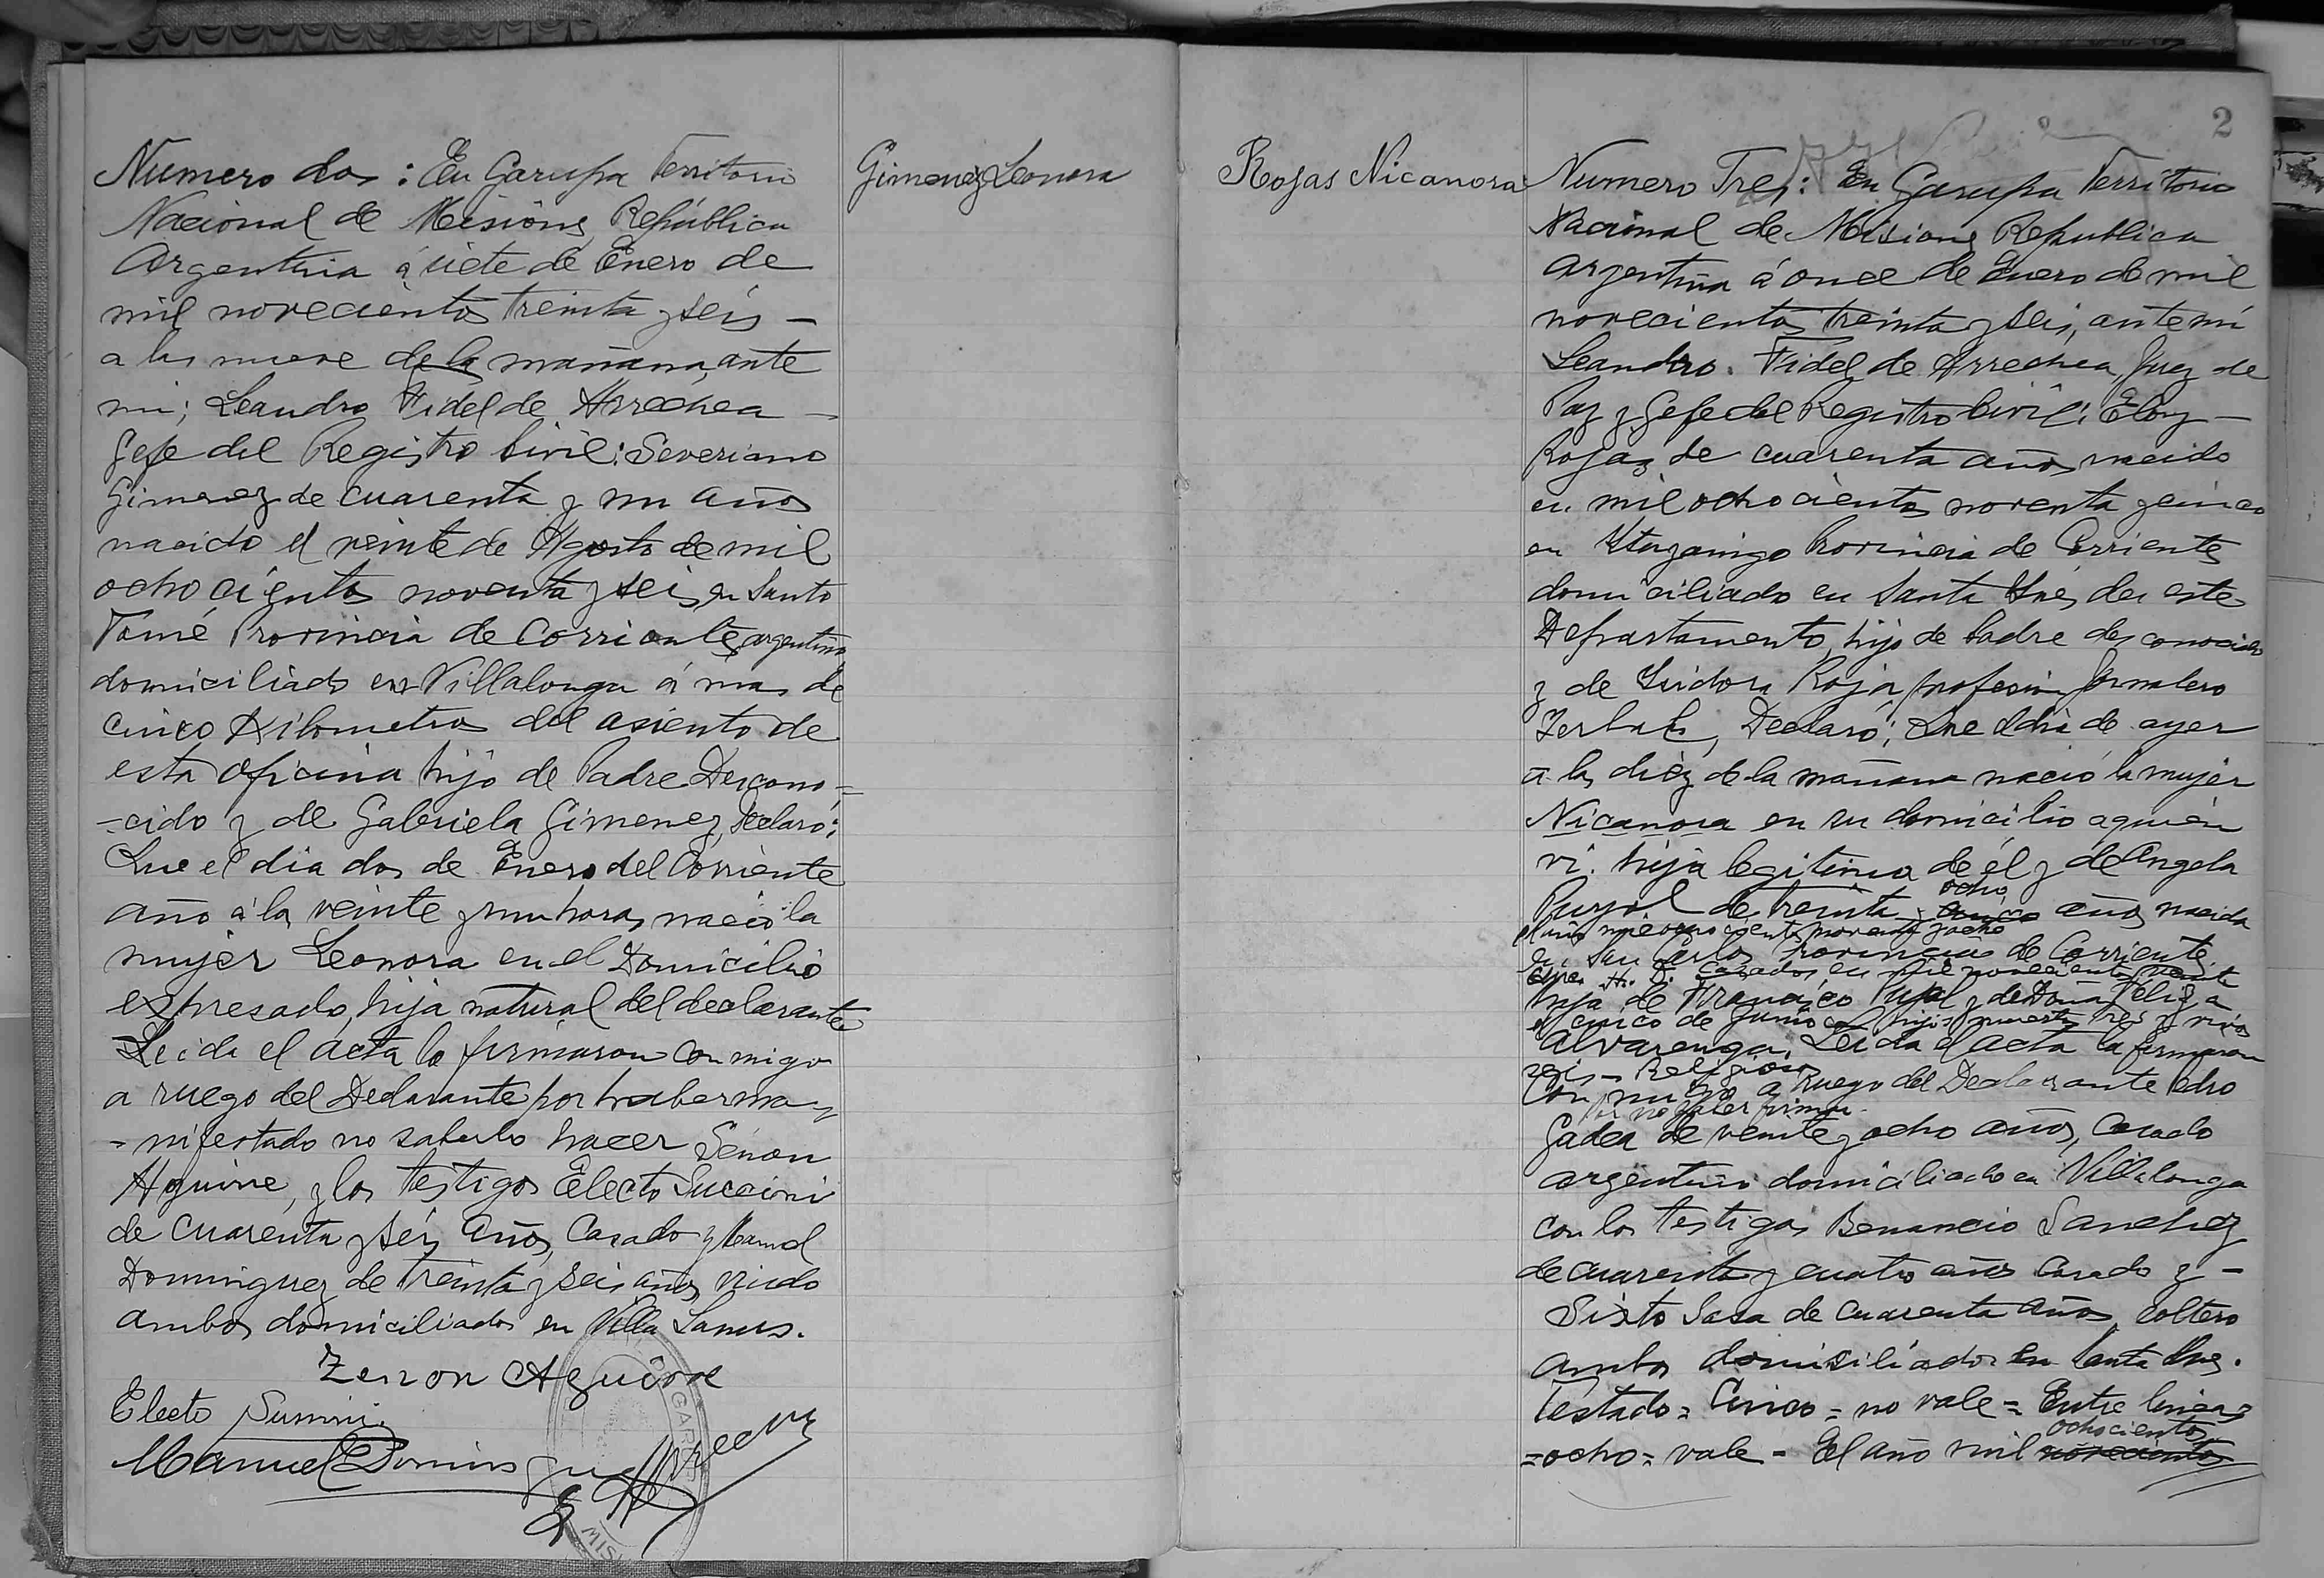 Numero dos: En Garupa Territorio
Nacional de Misiones República
Argentina á siete de Enero de
mil novecientos treinta y seis —
a las nueve de la mañana, ante
mi; Leandro Fidel de Arrechea —
Gefe del Registro Civil: Severiano
Gimenez de cuarenta y un años
nacido el veinte de Agosto de mil
ochocientos noventa y seis en Santo
Tomé Provincia de Corrientes argentino
domiciliado en Villalonga á mas de
cinco Kilometros del asiento de
esta oficina hijo de Padre Descono=
=cido y de Gabriela Gimenez, Declaró:
Que el dia dos de Enero del Corriente
año á las veinte y un horas, nació la
mujer Leonora en el Domicilio
expresado, hija natural del declarante
Leida el acta la firmaron conmigo
a ruego del Declarante por haberma=
=nifestado no saberlo hacer Senon
Aguirre, y los testigos Electo
de cuarenta y seis años, Casado y Manuel
Dominguez de treinta y seis años, viudo
ambos domiciliados en Villa Lanus.
Zenon Aguirre
Electo
Manuel Dominguez
Arrechea
Gimenez Leonora
Rojas Nicanora
2
Numero Tres: En Garupa Territorio
Nacional de Misiones Republica
Argentina á once de Enero de mil
novecientos treinta y seis, ante mi
Leandro. Fidel de Arrechea, Juez de
Paz y Gefe del Registro Civil: Eloy —
Rojas de cuarenta años nacido
en mil ochocientos noventa y cinco
en Ytuzaingo Provincia de Corrientes
domiciliado en Santa Ynés de este
Departamento, hijo de Padre desconocido
y de Ysidora Roja, profesion Jornalero
Declaró; Que el dia de ayer
a las diez de la mañana nació la mujer
Nicanora en su domicilio a quien
vi. hija legitima de él y de Angela
ocho
Pujol de treinta y cinco años nacida
noventa y ocho
en San Carlos Provincia de Corrientes
casados en mil novecientos veinte
hija de Francisco Pujol y de Doña Feliza
el cinco de Junio hijos muertos tres y vivos
Alvarenga. Leida el acta la firmaron
seis - Religioso
Conmigo a Ruego del Declarante Pedro
por no saber firmar.
Gadea de veinte y ocho años, Casado
argentino domiciliado en Villalonga
con los testigos Benancio Sanchez
de cuarenta y cuatro años Casado y —
Sixto Sasa de cuarenta años, soltero
ambos domisiliados en Santa Ynes.
Testado = Cinco = no vale = Entre lineas
ochocientos
=ocho= vale = El año mil novecientos